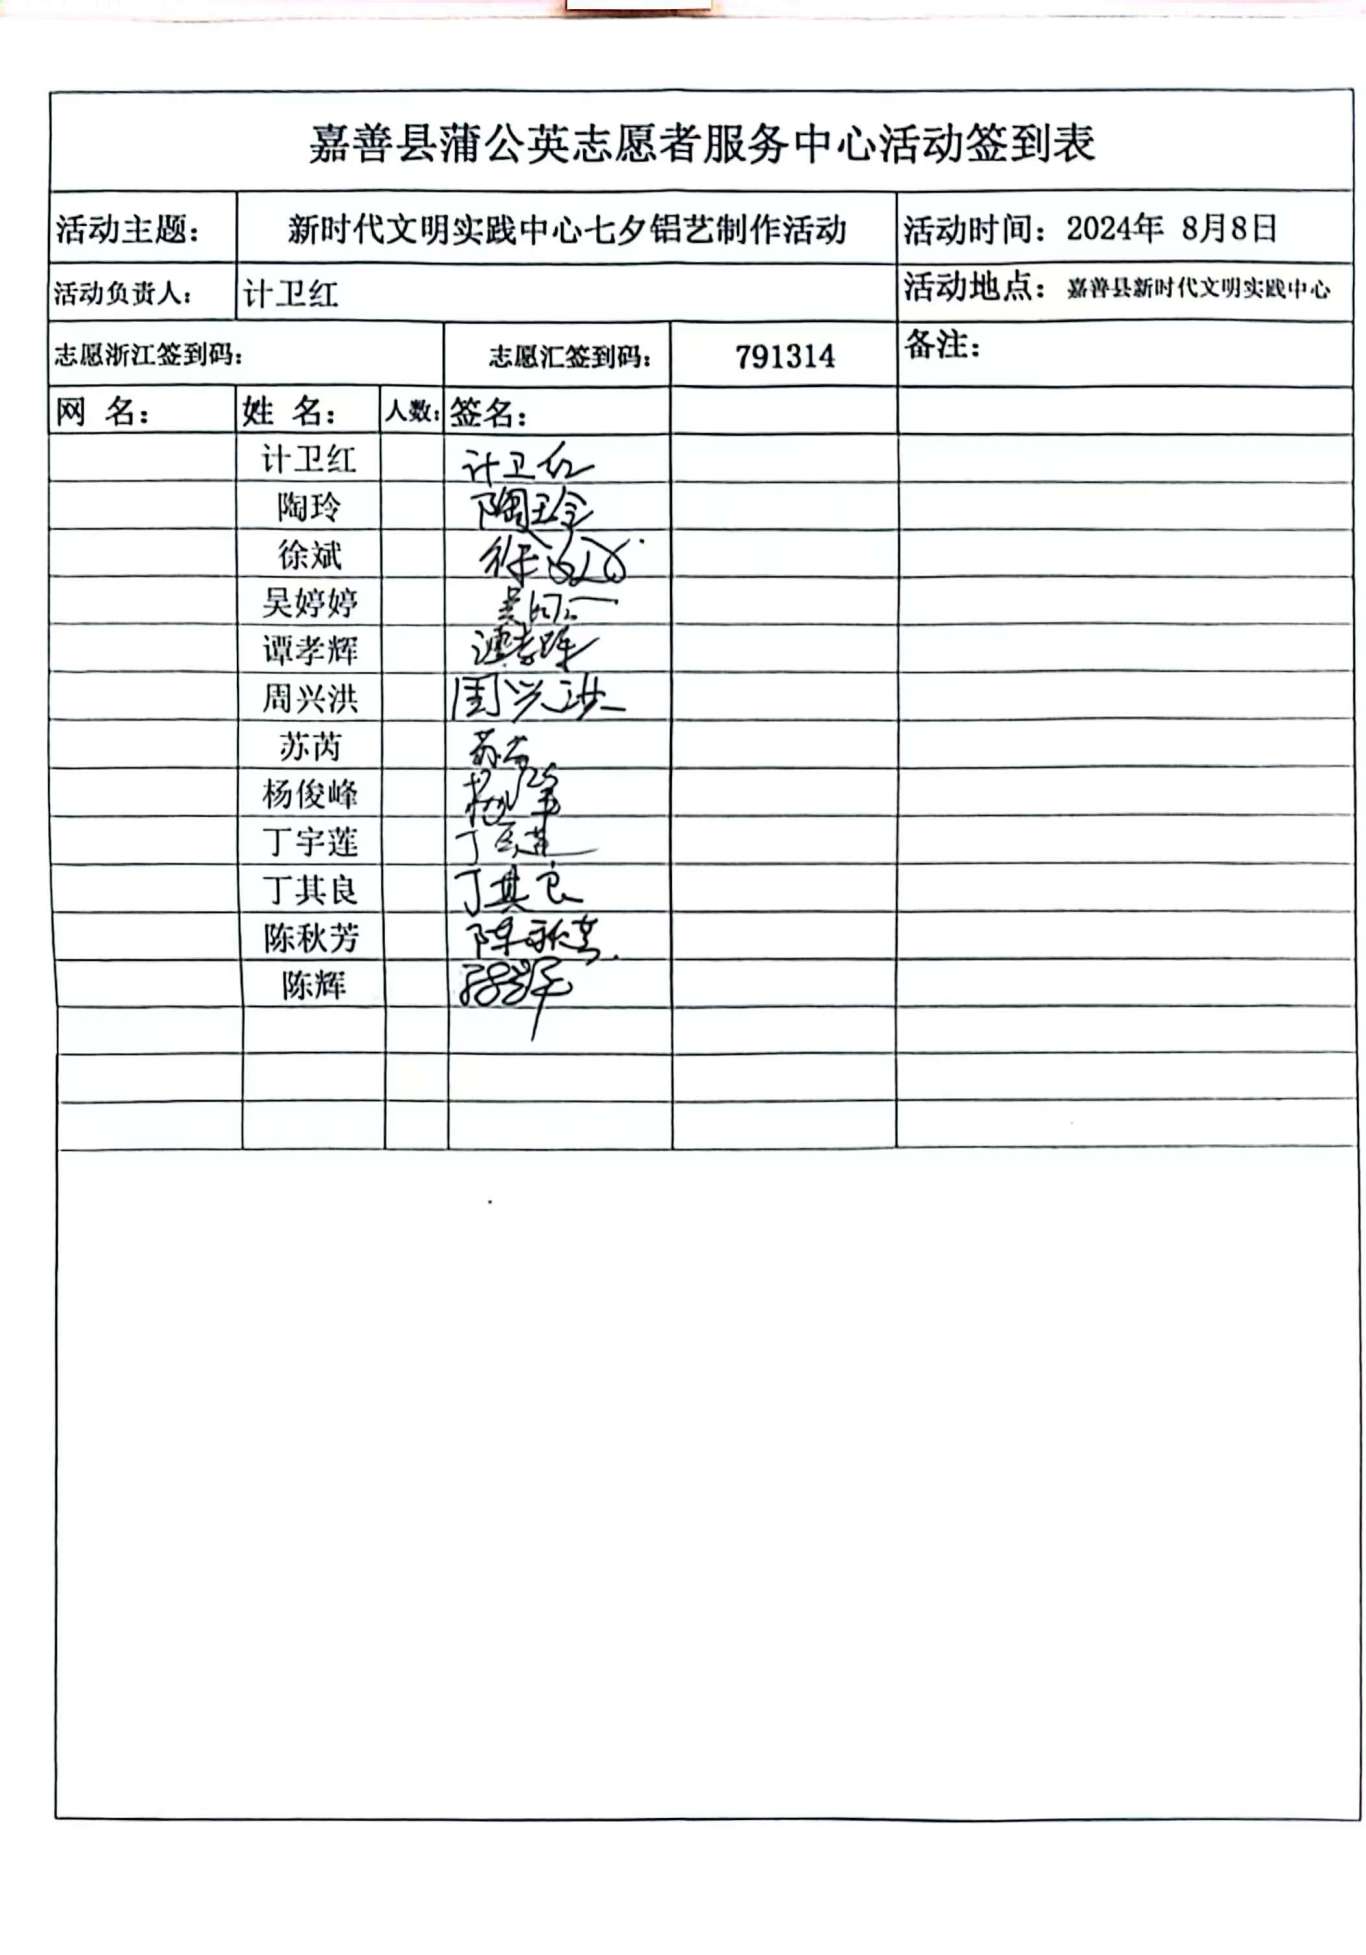 嘉善县蒲公英志愿者服务中心活动签到表
活动主题： 新时代文明实践中心七夕铝艺制作活动 活动时间：2024年 8月8日
活动负责人： 计卫红 活动地点：嘉善县新时代文明实践中心
志愿浙江签到码： 志愿汇签到码： 791314 备注：
网 名： 姓 名： 人数： 签名：
计卫红 计卫红
陶玲 陶玲
徐斌 徐
吴婷婷 吴
谭孝辉 谭孝辉
周兴洪 周兴洪
苏芮 苏芮
杨俊峰 杨
丁宇莲 丁宇莲
丁其良 丁其良
陈秋芳 陈秋芳
陈辉